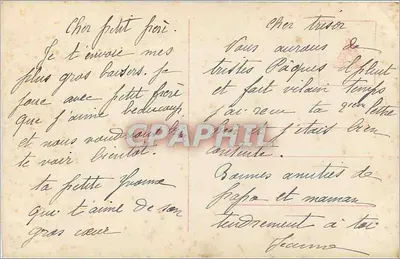 Cher petit frère.
Je t'envoie mes
plus gros baisers. Je
joue avec petit frère
que j'aime beaucoup
et nous voudrions
te voir bientot.
ta petite Yvonne
que t'aime de son
gros cœur
Cher trésor
Vous aurons de
tristes Pâques il pleut
et fait vilain temps
j'ai reçu ta lettre
j'étais bien
contente.
Bonnes amitiés de
papa et maman
tendrement à toi
Jeanne
CPAPHIL